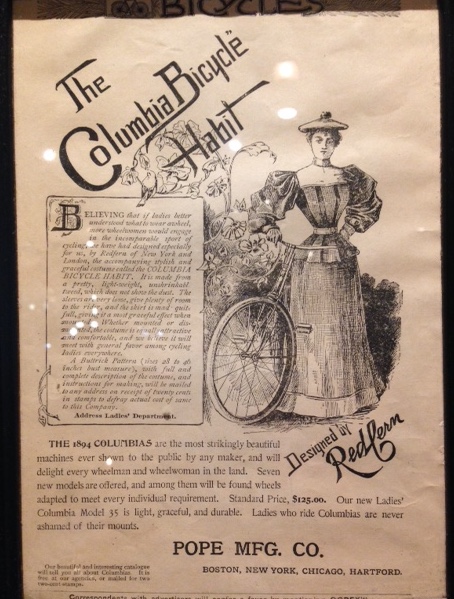 BICYCLES
The
Columbia Bicycle
Habit"
BELIEVING that if ladies better
understood what to wear awheel,
more wheelwomen would engage
in the incomparable sport of
cycling, we have had designed especially
for us, by Redfern of New York and
London, the accompanying stylish and
graceful costume called the COLUMBIA
BICYCLE HABIT. It is made from
a pretty, light-weight, unshrinkable
tweed, which does not show the dust. The
sleeves are very loose, give plenty of room
to the rider, and the skirt is made quite
full, giving it a most graceful effect when
Whether mounted or dis-
the costume is very attractive
and comfortable, and we believe it will
meet with general favor among cycling
ladies everywhere.
A Buttrick Pattern (sizes 28 to 46
inches bust measure), with full and
complete description of the costume, and
instructions for making, will be mailed
to any address on receipt of twenty cents
in stamps to defray actual cost of same
to this Company.
Address Ladies' Department.
Designed by
Redfern
THE 1894 COLUMBIAS are the most strikingly beautiful
machines ever shown to the public by any maker, and will
delight every wheelman and wheelwoman in the land. Seven
new models are offered, and among them will be found wheels
adapted to meet every individual requirement. Standard Price, $125.00. Our new Ladies'
Columbia Model 35 is light, graceful, and durable. Ladies who ride Columbias are never
ashamed of their mounts.
POPE MFG. CO.
BOSTON, NEW YORK, CHICAGO, HARTFORD.
Our beautiful and interesting catalogue
will tell you all about Columbias. It is
free at our agencies, or mailed for two
two-cent stamps.
Correspondents with advertisers will